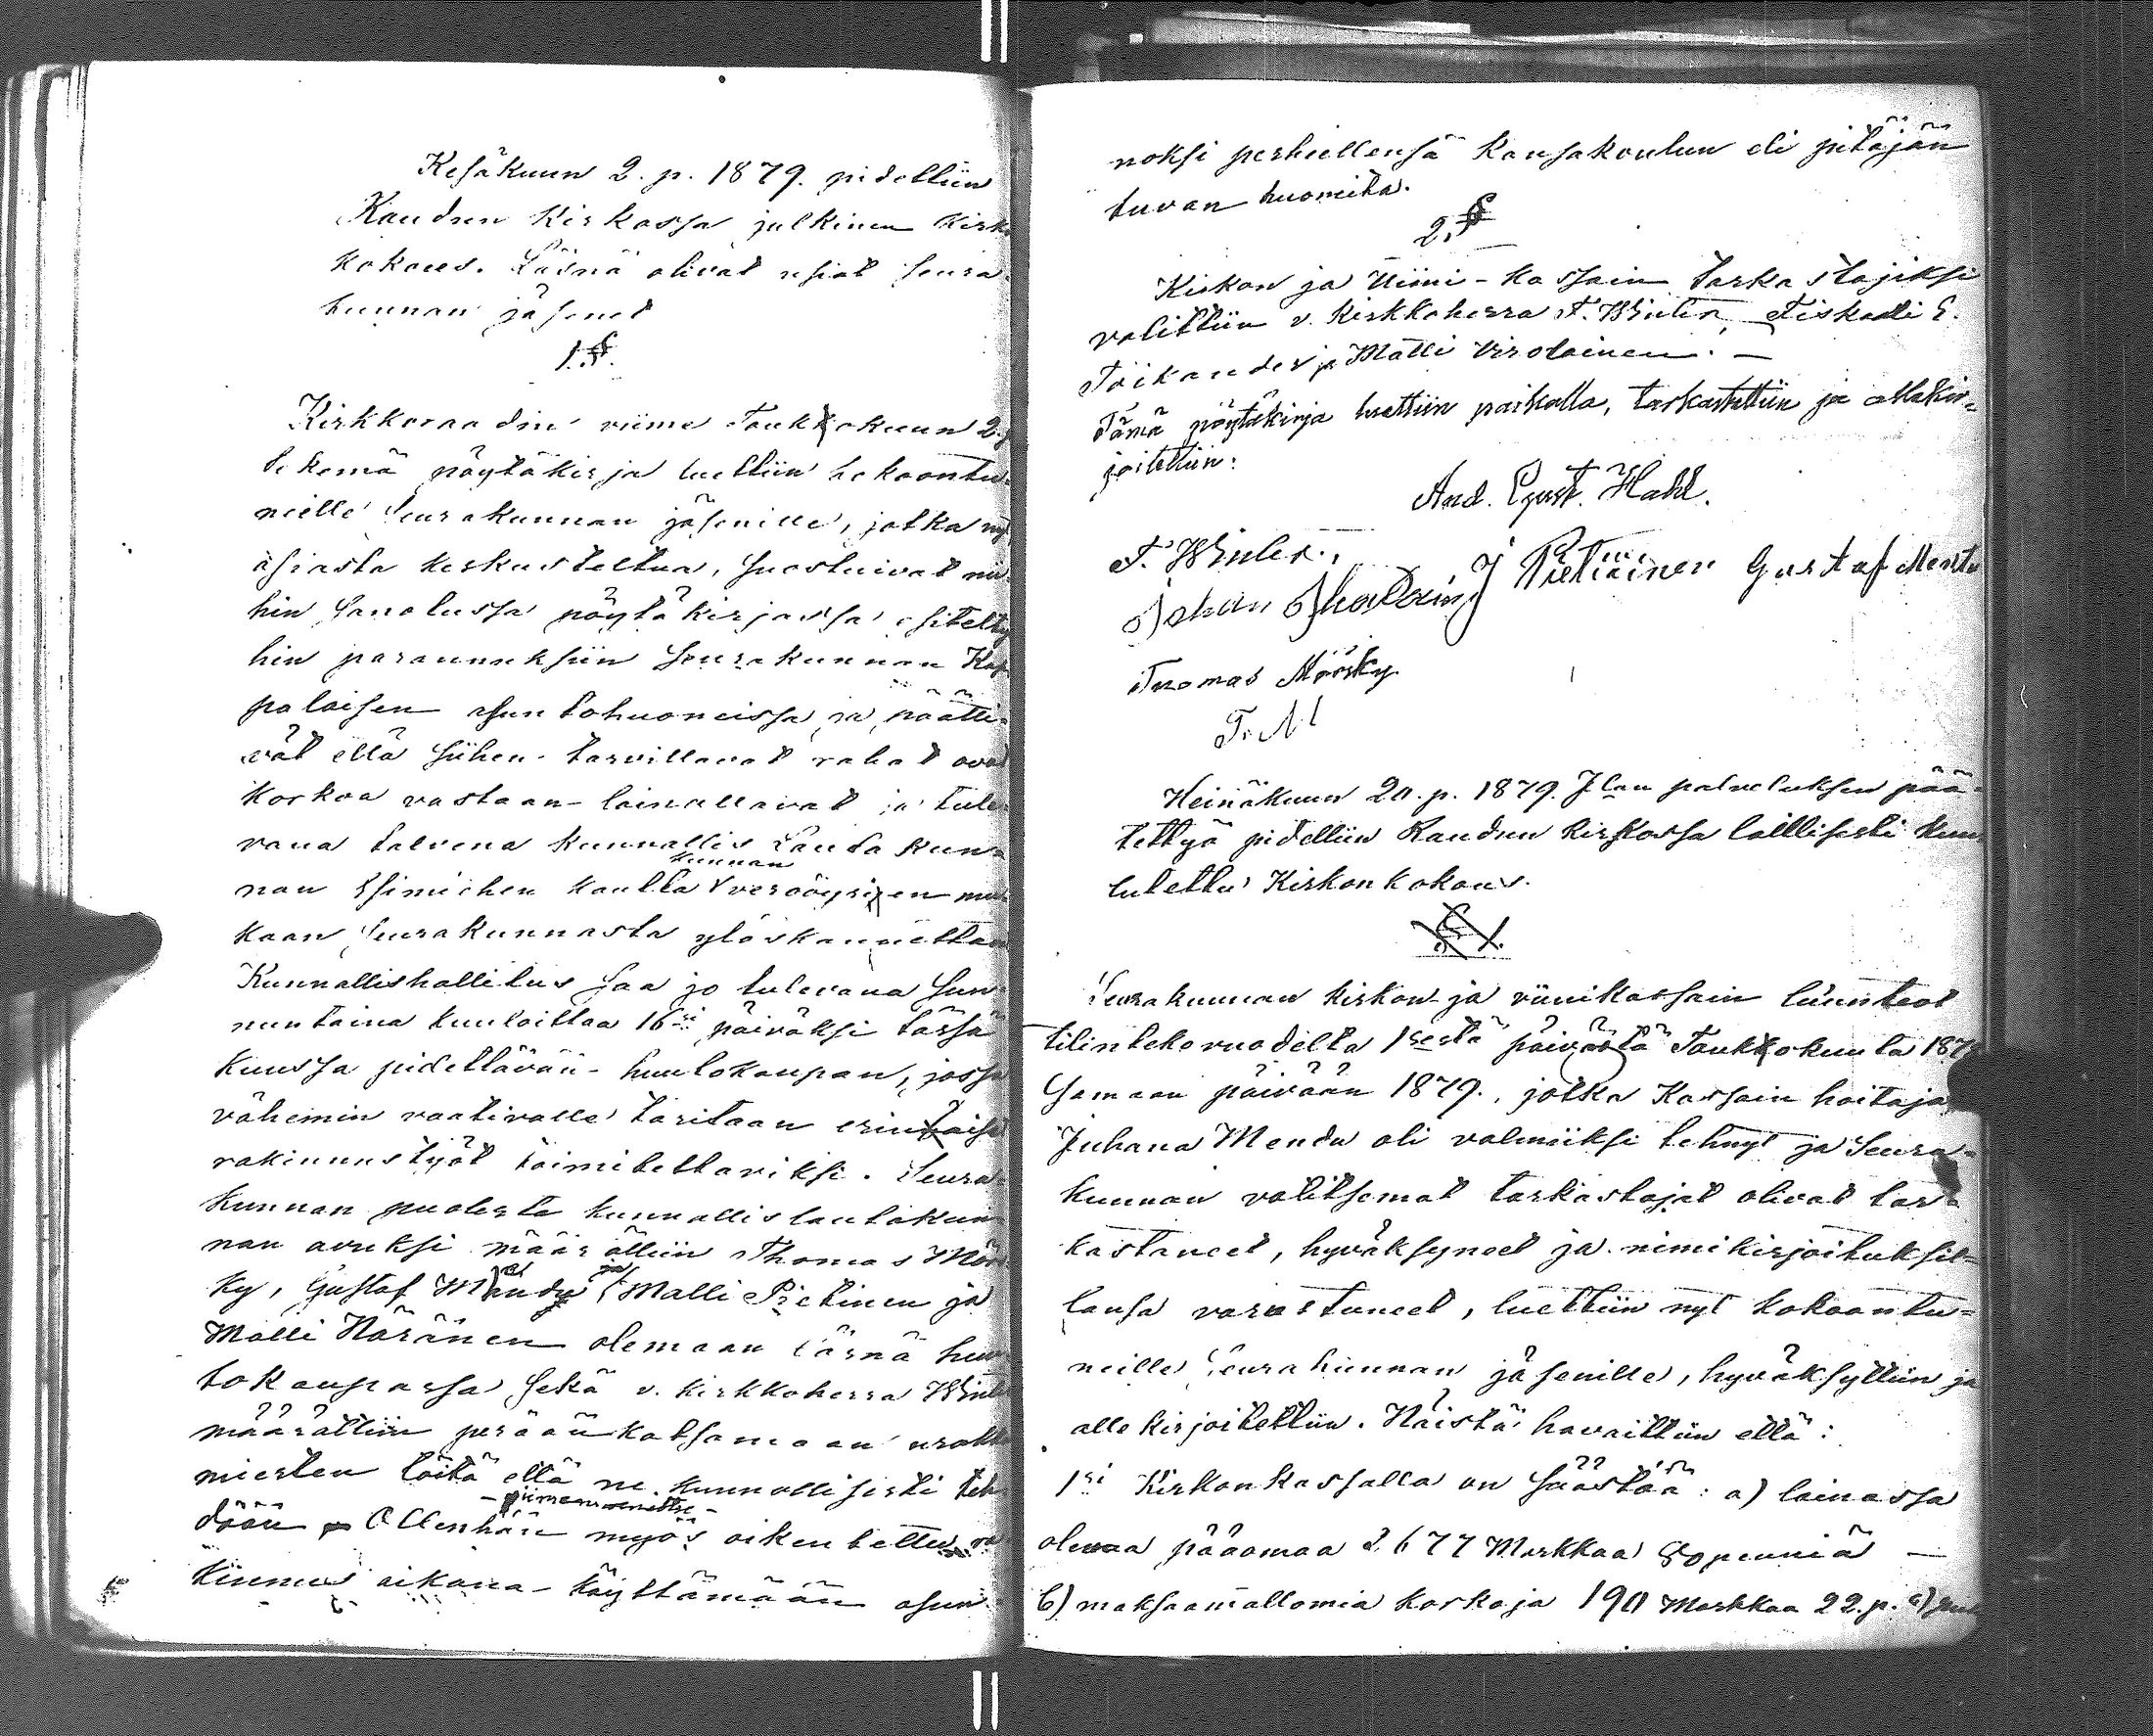 Kesäkuun 2. p. 1879. pidettiin
Raudun Kirkossa julkinen Kirko
kokous. Läsnä olivat usiat Seura-
kunnan jäsenet
1.§.
Kirkkoraadin viime Toukokuun 2. p
tekemä pöytäkirja luettiin kokoontu-
neille Seurakunnan jäsenille, jotka nyt
asiasta keskusteltua, suostuivat nii-
hin sanotussa pöytäkirjassa esitelty
hin parannuksiin Seurakunnan Kap
palaisen asuntohuoneissa ja päätti-
vät että siihen tarvittavat rahat ovat
korkoa vastaan lainattavat ja tule-
vana talvena kunnallis Lautakun-
nan Esimiehen kautta kunnan veroäyrien mu-
kaan Seurakunnasta ylöskannettan
Kunnallishallitus saa jo tulevana Sun-
nuntaina kuuloittaa 16si päiväksi tässä
kuussa pidettävän huutokaupan, jossa
vähemin vaativalle taritaan erinäiset
rakennustyöt toimitettaviksi. Seura-
kunnan puolesta kunnallislautakun
nan avuksi määrättiin Thomas Mörs
ky, Gustaf Mändy ja Matti Pietinen ja
Matti Näränen olemaan läsnä huu
tokaupassa sekä v. kirkkoherra Winter
määrättiin peräänkatsomaan urakka
miesten töitä että ne kunnollisesti teh
dään Ollen hän myös oikeutettu ra
kennus aikana käyttämään asun-
noksi perheellensä Kansakoulun eli pitäjän
tuvan huoneita.
2.§
Kirkon ja Viini-kassain tarkastajiksi
valittiin v. Kirkkoherra F. Winter, Fiskali E.
Toikander ja Matti Virolainen. —
Tämä pöytäkirja luettiin paikalla, tarkastettiin ja allekir-
joitettiin:
And. Gust. Hahl.
F. Winter.
Johan J Pietiäinen Gustaf Mentu
Tuomas Mörsky
T. M
Heinäkuun 20. p. 1879. Jlan palveluksen pää-
tettyä pidettiin Raudun kirkossa laillisesti kuu-
lutettu Kirkonkokous.
§ 1.
Seurakunnan kirkon ja viinikassain luunteot
tilintekovuodelta 1sestä päivästä Toukokuuta 1878
Samaan päivään 1879., jotka Kassain hoitaja
Juhana Mendu oli valmiiksi tehnyt ja Seura-
kunnan valitsemat tarkastajat olivat tar-
kastaneet, hyväksyneet ja nimikirjoituksil-
lansa varustaneet, luettiin nyt kokoontu-
neille Seurakunnan jäsenille, hyväksyttiin ja
allekirjoitettiin. Näistä havaittiin että:
1si Kirkonkassalla on säästää: a) lainassa
olevaa pääomaa 2,677 Markkaa 80 penniä —
b) maksaamattomia korkoja 190 Markkaa 22. p. c)